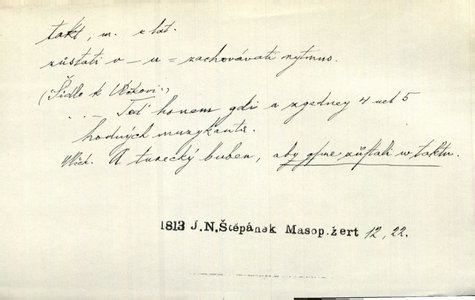 takt, m. z lat.
zůstati v – u = zachovávati rytmus.
(Šídlo k Vlčkovi.,)
... – Teď honem gdi a zgedney 4 neb 5
hodných muzykantů.
Mich. A turecký buben, aby gsme zůstali w taktu.
1813 J.N.Štěpánek Masop.žert 12, 22.